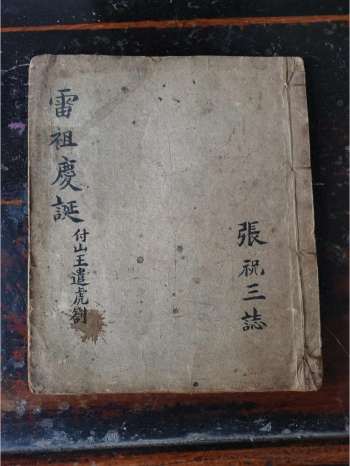 雷祖慶誕
付山王遣虎劄
張祝三誌